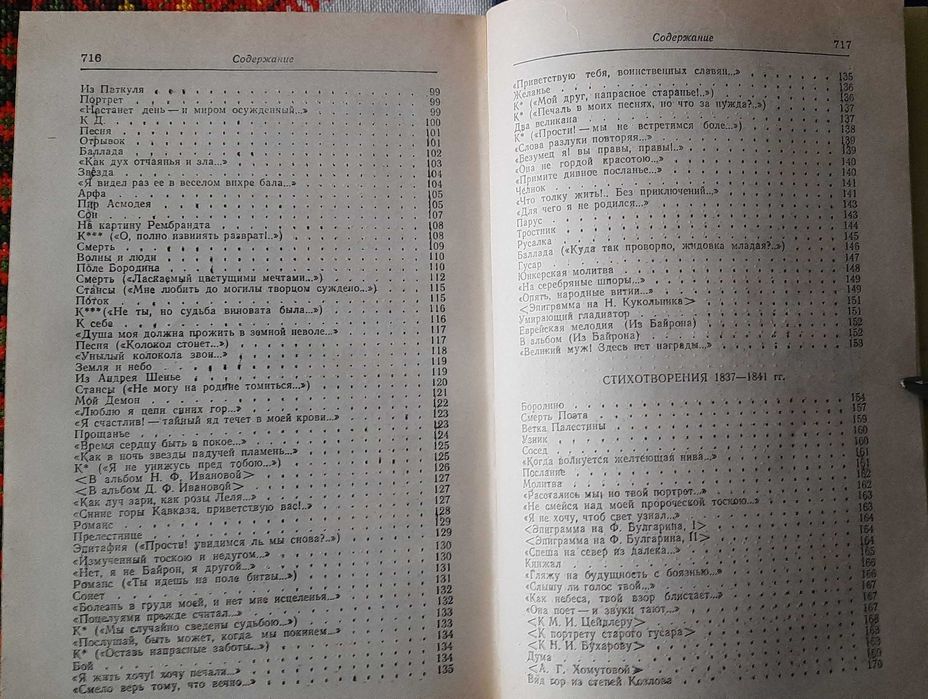 716 Содержание
Из Паткуля 99
Портрет 99
«Настанет день — и миром осужденный...» 99
К Д. 100
Песня 101
Отрывок 101
Баллада 102
«Как дух отчаянья и зла...» 103
Звезда 104
«Я видел раз ее в веселом вихре бала...» 104
Арфа 105
Пир Асмодея 105
Сон 107
На картину Рембрандта 108
К*** («О, полно извинять разврат!..») 108
Смерть 109
Волны и люди 110
Поле Бородина 110
Смерть («Ласкаемый цветущими мечтами...») 112
Стансы («Мне любить до могилы творцом суждено...») 115
Поток 115
К*** («Не ты, но судьба виновата была...») 116
К себе 116
«Душа моя должна прожить в земной неволе...» 117
Песня («Колокол стонет...») 117
«Унылый колокола звон...» 118
Земля и небо 119
Из Андрея Шенье 119
Стансы («Не могу на родине томиться...») 120
Мой Демон 121
«Люблю я цепи синих гор...» 122
«Я счастлив! — тайный яд течет в моей крови...» 123
Прощанье 123
«Время сердцу быть в покое...» 124
«Как в ночь звезды падучей пламень...» 125
К* («Я не унижусь пред тобою...») 125
<В альбом Н. Ф. Ивановой> 126
<В альбом Д. Ф. Ивановой> 127
«Как луч зари, как розы Леля...» 127
«Синие горы Кавказа, приветствую вас!..» 127
Романс 128
Прелестнице 129
Эпитафия («Прости! увидимся ль мы снова?..») 129
«Измученный тоскою и недугом...» 130
«Нет, я не Байрон, я другой...» 130
Романс («Ты идешь на поле битвы...») 131
Сонет 131
«Болезнь в груди моей, и нет мне исцеленья...» 132
«Поцелуями прежде считал...» 132
К* («Мы случайно сведены судьбою...») 133
«Послушай, быть может, когда мы покинем...» 133
К* («Оставь напрасные заботы...») 134
Бой 134
«Я жить хочу! хочу печали...» 134
«Смело верь тому, что вечно...» 135
Содержание 717
«Приветствую тебя, воинственных славян...» 135
Желанье 136
К* («Мой друг, напрасное старанье!..») 136
К* («Печаль в моих песнях, но что за нужда?..») 137
Два великана 137
К* («Прости! — мы не встретимся боле...») 138
«Слова разлуки повторяя...» 139
«Безумец я! вы правы, правы!..» 139
«Она не гордой красотою...» 140
«Примите дивное посланье...» 140
Челнок 141
«Что толку жить!.. Без приключений...» 141
«Для чего я не родился...» 143
Парус 143
Тростник 144
Русалка 145
Баллада («Куда так проворно, жидовка младая?..») 146
Гусар 147
Юнкерская молитва 148
«На серебряные шпоры...» 149
«Опять, народные витии...» 149
<Эпиграмма на Н. Кукольника> 151
Умирающий гладиатор 151
Еврейская мелодия (Из Байрона) 152
В альбом (Из Байрона) 152
«Великий муж! Здесь нет награды...» 153
СТИХОТВОРЕНИЯ 1837—1841 гг.
Бородино 154
Смерть Поэта 157
Ветка Палестины 159
Узник 160
Сосед 160
«Когда волнуется желтеющая нива...» 161
Послание 161
Молитва 162
«Расстались мы, но твой портрет...» 162
«Не смейся над моей пророческой тоскою...» 163
«Я не хочу, чтоб свет узнал...» 163
<Эпиграмма на Ф. Булгарина, I> 164
<Эпиграмма на Ф. Булгарина, II> 164
«Спеша на север из далека...» 164
Кинжал 165
«Гляжу на будущность с боязнью...» 166
«Слышу ли голос твой...» 166
«Как небеса, твой взор блистает...» 167
«Она поет — и звуки тают...» 167
<К М. И. Цейдлеру> 167
<К портрету старого гусара> 168
<К Н. И. Бухарову> 168
Дума 169
<А. Г. Хомутовой>
Вид гор из степей Козлова 170